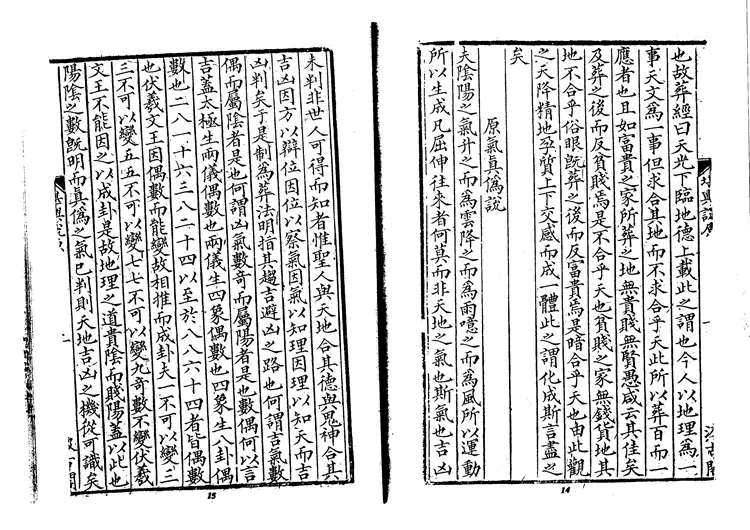 也故葬經曰天光下臨地德上載此之謂也今人以地理為一
事天文為一事但求合其地而不求合乎天此所以葬百而一
應者也且如富貴之家所葬之地無貴賤無賢愚咸云其佳矣
及葬之後而反貧賤焉是不合乎天也貧賤之家無錢貨地其
地不合乎俗眼旣葬之後而反富貴焉是暗合乎天也由此觀
之天降精地孕質上下交感而成一體此之謂化成斯言盡之
矣
原氣真僞說
夫陰陽之氣升之而為雲降之而為雨噫之而為風所以運動
所以生成凡屈伸往來者何莫而非天地之氣也斯氣也吉凶
14
未判非世人可得而知者惟聖人與天地合其德與鬼神合其
吉凶因方以辯位因位以察氣因氣以知理因理以知天而吉
凶判矣于是制為葬法明指其趨吉避凶之路也何謂吉氣數
偶而屬陰者是也何謂凶氣數奇而屬陽者是也數偶何以言
吉蓋太極生兩儀偶數也兩儀生四象偶數也四象生八卦偶
數也二八一十六三八二十四以至於八八六十四者皆偶數
也伏羲文王因偶數而能變故相推而成卦夫一不可以變三
三不可以變五五不可以變七七不可以變九奇數不變伏羲
文王不能因之以成卦是故地理之道貴陰而賤陽蓋以此也
陽陰之數旣明而真僞之氣已判則天地吉凶之機從可識矣
15